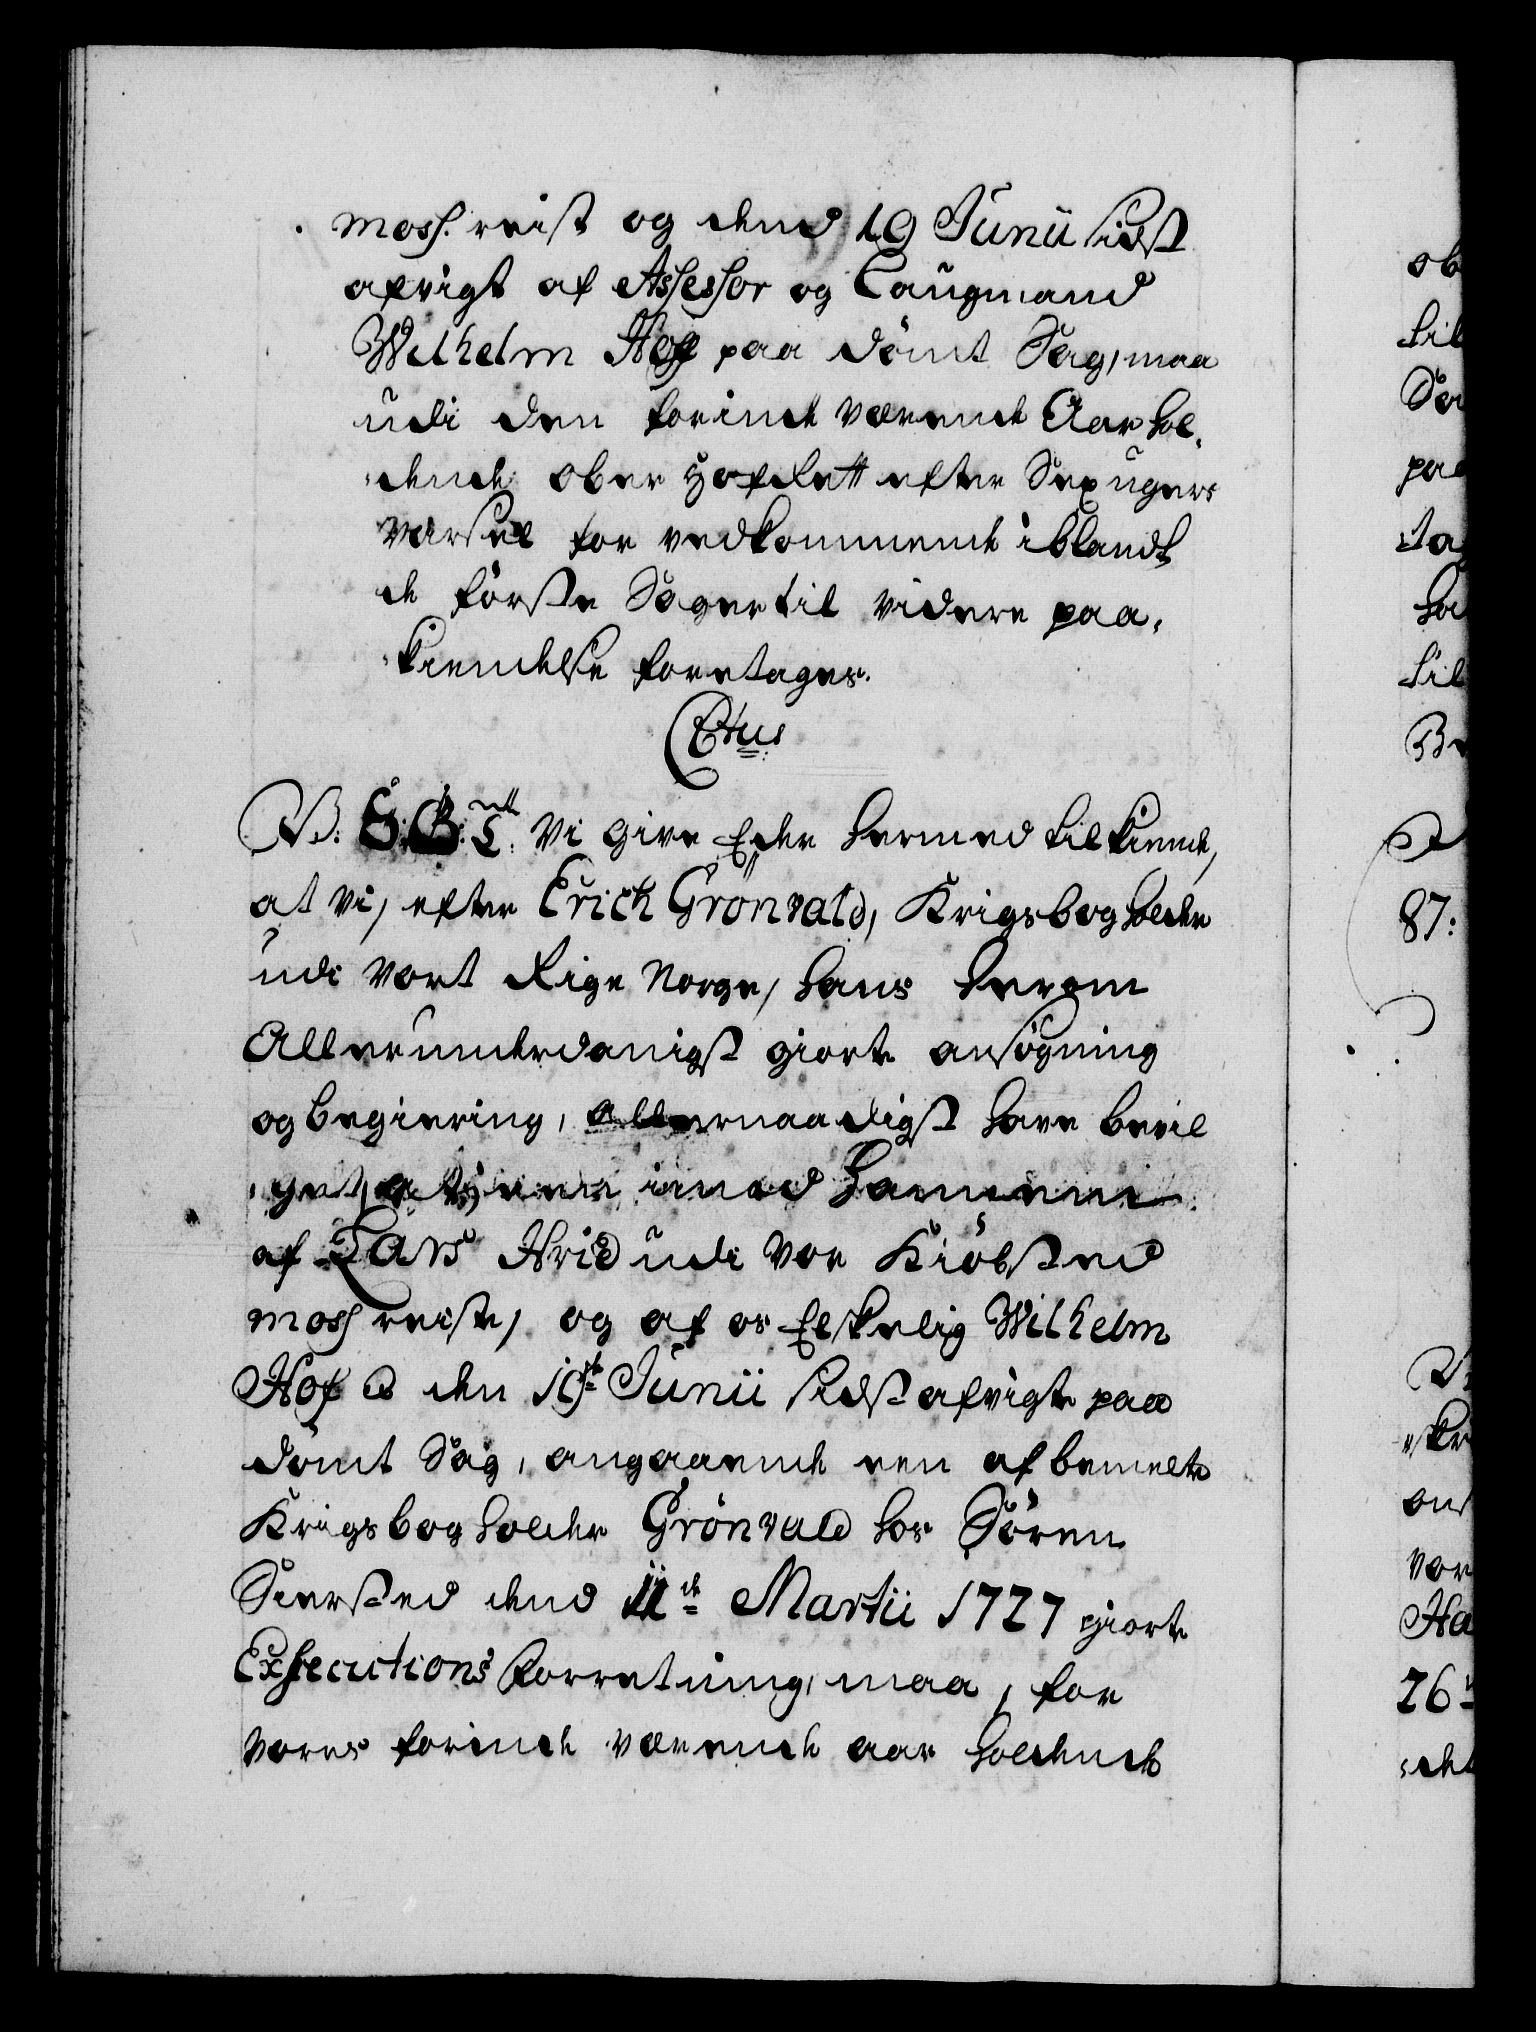 Moss. reist og dend 19 Junii sidst
afsigt af Assessor og Laugmand
Wilhelm Hof paa dömt Sag, maa
udi den forinde værende Aar hol-
dende Ober Hof Rett efter Sex ugers
varsel for vedkommende iblandt
de förste Sager til videre paa-
kiendelse foretages.
V: G: T: Vi give Eder hermed tilkiende,
at vi, efter Erich Grönvald, Krigsbogholder
udi vort Rige Norge, hans herom
Allerunderdanigst giorte ansögning
og begiering, allernaadigst have bevil
-get, at een imod hannem
af Lars Hvid udi vor Kiöbsted
Moss reiste, og af os Elskelig Wilhelm
Hof den 19de Junii sidst afsigte paa
dömt Sag, angaaende een af bemelte
Krigsbogholder Grönvald hos Sören
Siersted dend 11de Martii 1727 giorte
Executions Forretning, maa, for
vores forinde værende aar holdende
ob
til
Sa
pa
ta
ha
til
87:
vor
Ha
26